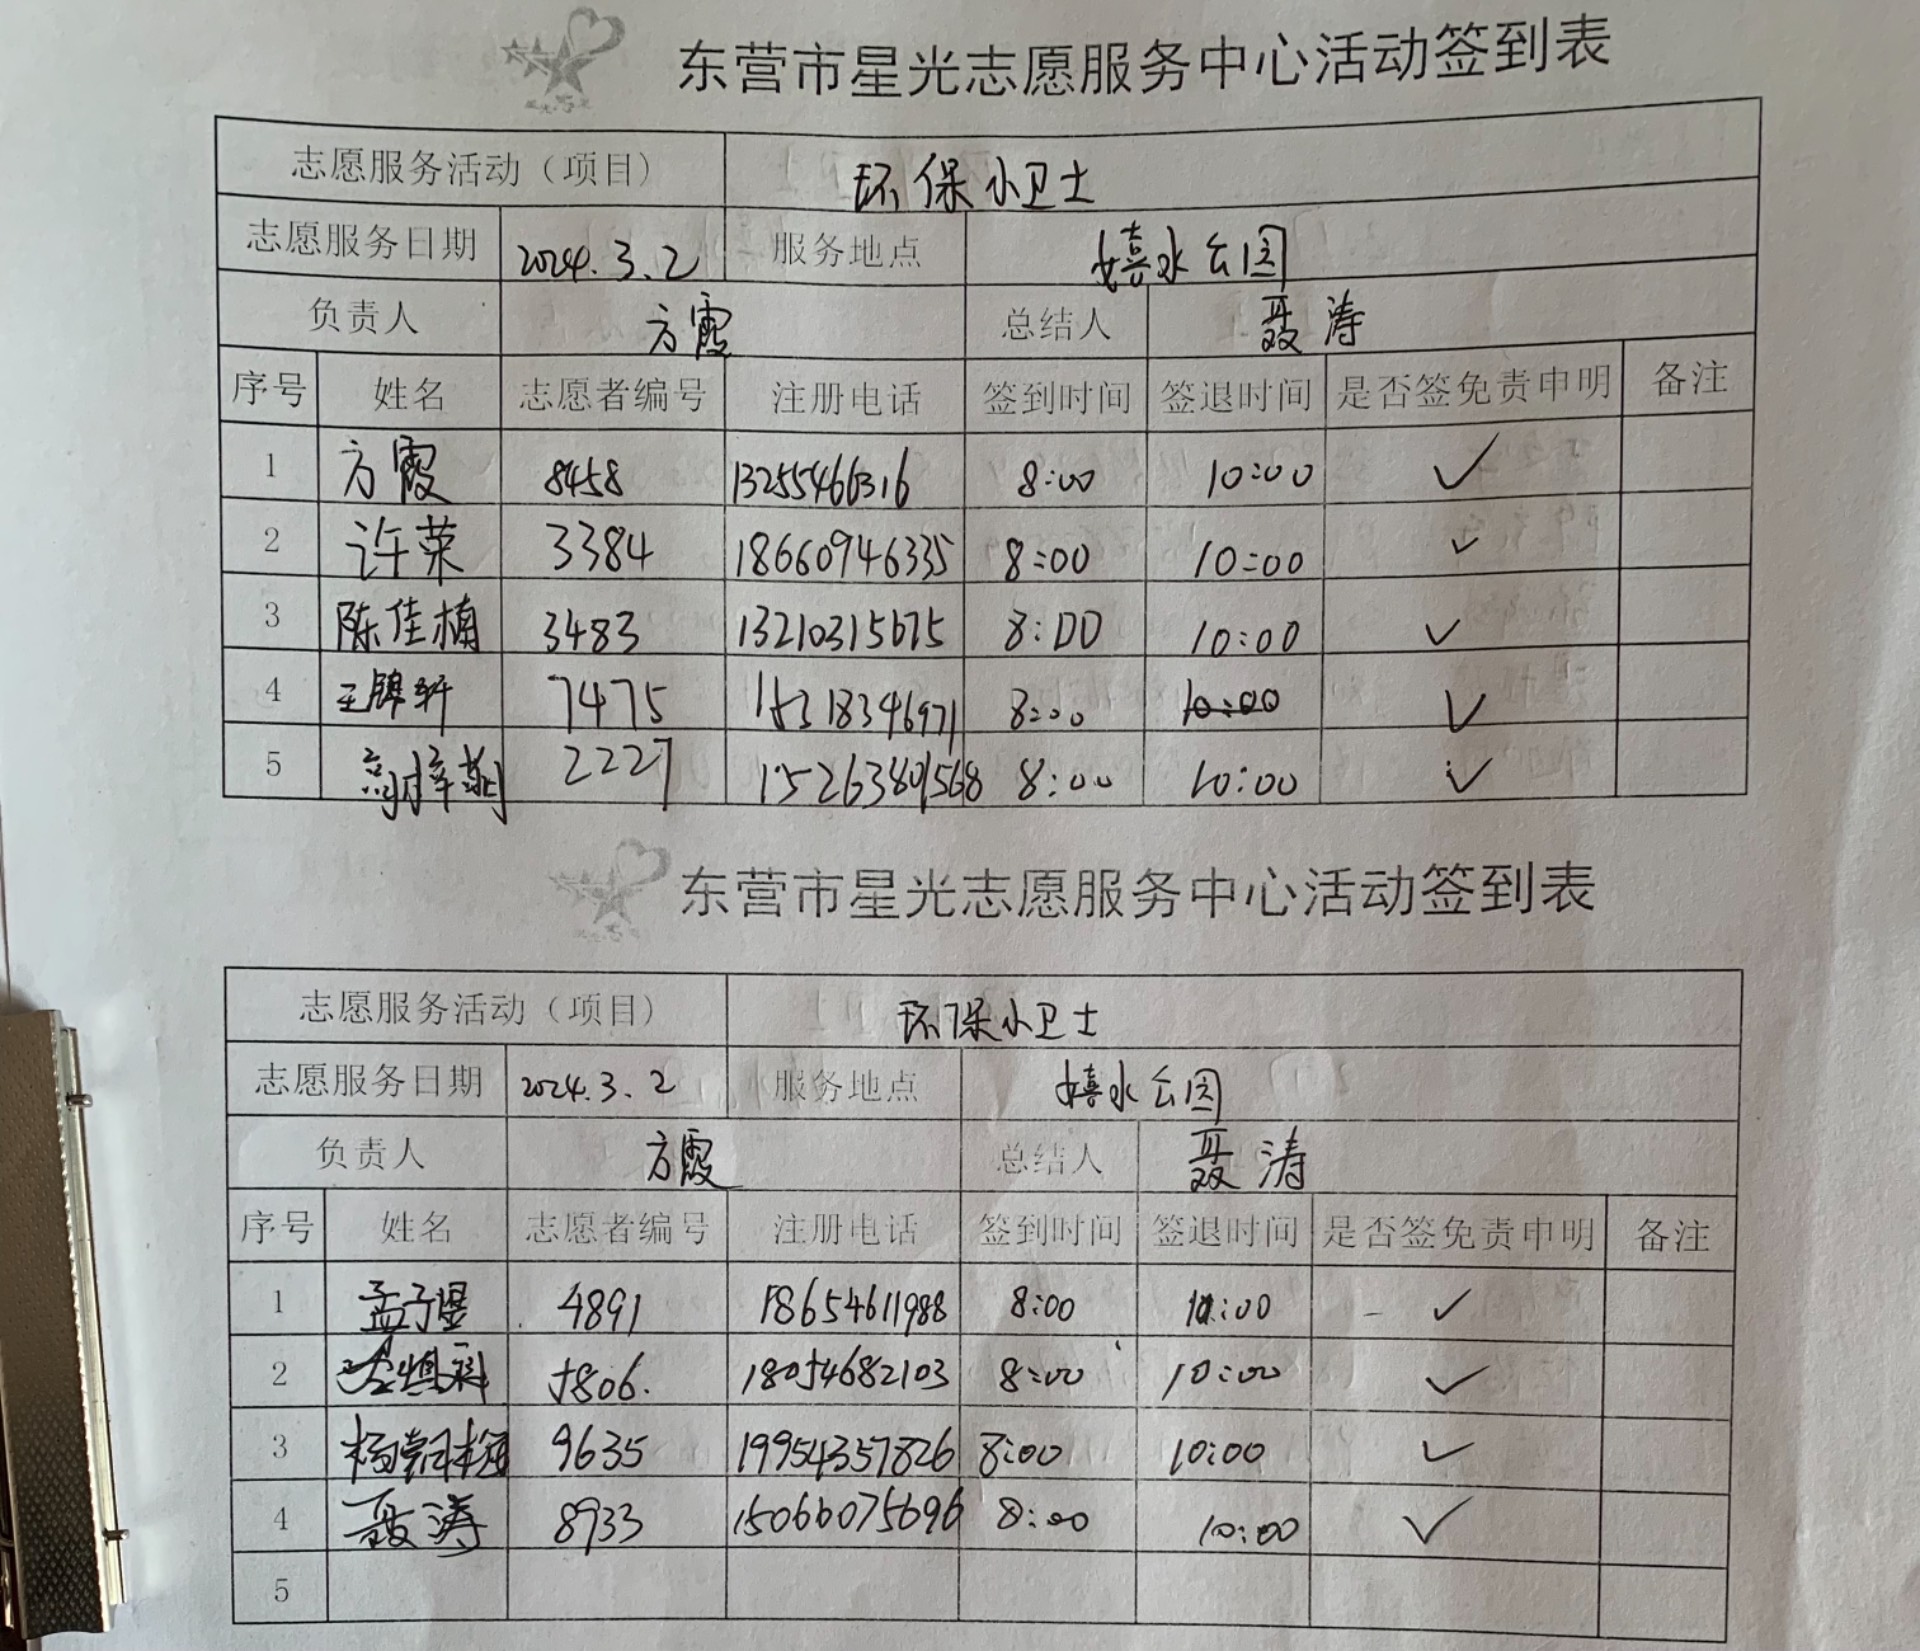 东营市星光志愿服务中心活动签到表
志愿服务活动（项目） 环保小卫士
志愿服务日期 2024.3.2 服务地点 嬉水公园
负责人 方霞 总结人 聂涛
序号 姓名 志愿者编号 注册电话 签到时间 签退时间 是否签免责申明 备注
1 方霞 8458 13255466316 8:00 10:00 ✓
2 许荣 3384 18660946335 8:00 10:00 ✓
3 陈佳楠 3483 13210315675 8:00 10:00 ✓
4 王锦轩 7475 15318346971 8:00 10:00 ✓
5 2227 15263801568 8:00 10:00 ✓
东营市星光志愿服务中心活动签到表
志愿服务活动（项目） 环保小卫士
志愿服务日期 2024.3.2 服务地点 嬉水公园
负责人 方霞 总结人 聂涛
序号 姓名 志愿者编号 注册电话 签到时间 签退时间 是否签免责申明 备注
1 孟子昱 4891 18654611988 8:00 10:00 ✓
2 5806. 18054682103 8:00 10:00 ✓
3 9635 19954357826 8:00 10:00 ✓
4 聂涛 8933 15066075696 8:00 10:00 ✓
5